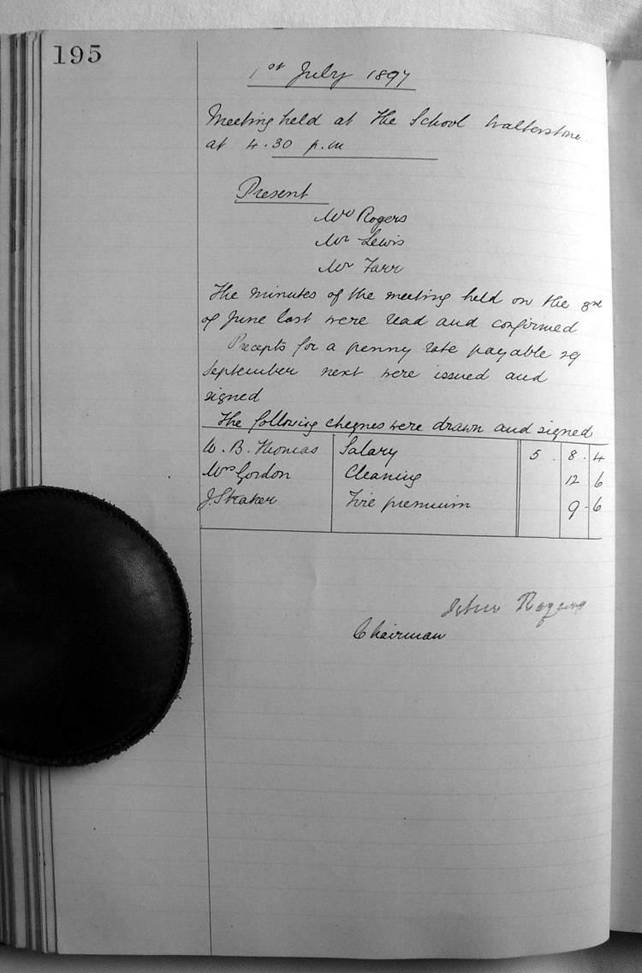 195
1st July 1897
Meeting held at the School Walterstone
at 4.30 p.m
Present
Mr Rogers
Mr Lewis
Mr Farr
The minutes of the meeting held on the
of June last were read and confirmed
Precepts for a penny rate payable 29
September next were issued and
signed
The following cheques were drawn and signed
W. B. Thomas Salary 5 . 8 . 4
Mrs Gordon Cleaning 12 6
J. Straker Fire premium 9 - 6
John Rogers
Chairman